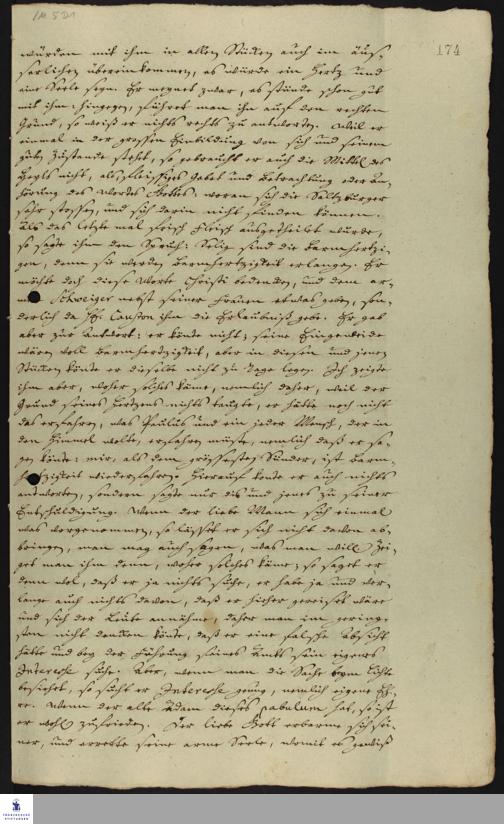 1M 5D1
174
würden mit ihm in allen Stücken auch im äus-
serlichen übereinkommen, es würde ein Hertz und
eine Seele seyn. Er meynet zwar, es stünde schon gut
mit ihm: hingegen, führet man ihn auf den rechten
Grund, so weiß er nichts rechts zu antworten. Weil er
einmal in der grossen Einbildung von sich und seinem
guten Zustande stehet, so gebraucht er auch die Mittel des
Heyls nicht, als fleissiges Gebet und Betrachtung oder An-
hörung des Wortes Gottes: woran sich die Saltzburger
sehr stossen, und sich darin nicht finden können.
Als das letzte mal frisch Fleisch ausgetheilet wurde,
so sagte ihm den Spruch: Selig sind die Barmhertzi-
gen, denn sie werden Barmhertzigkeit erlangen. Er
möchte doch diese Worte Christi bedencken, und dem ar-
men Schweiger nebst seiner Frauen etwas geben, son-
derlich da H. Causton ihm die Erlaubniß gebe. Er gab
aber zur Antwort: er könte nicht; seine Eingeweide
wären voll Barmhertzigkeit, aber in diesen und jenen
Stücken könte er dieselbe nicht zu Tage legen. Ich zeigte
ihm aber, woher solches käme, nemlich daher, weil der
Grund seines Hertzens nichts taugte, er hätte noch nicht
das erfahren, was Paulus und ein jeder Mensch, der in
den Himmel wolte, erfahren müste, nemlich daß er sa-
gen könte: mir, als dem grössesten Sünder, ist Barm-
hertzigkeit wiederfahren. Hierauf konte er auch nichts
antworten, sondern sagte nur dis und jenes zu seiner
Entschuldigung. Wenn der liebe Mann sich einmal
was vorgenommen, so lässet er sich nicht davon ab-
bringen, man mag auch sagen, was man will. Zei-
get man ihm denn, woher solches käme; so saget er
denn wol, daß er ja nichts suche, er habe ja und ver-
lange auch nichts davon, daß er hieher gereiset wäre
und sich der Leute annähme, daher man im gering-
sten nicht dencken könte, daß er eine falsche Absicht
hätte und bey der Führung seines Amts sein eigenes
Interesse suche. Aber, wenn man die Sache beym Lichte
besiehet, so sucht er Interesse genug, nemlich eigene Eh-
re. Wenn der alte Adam dieses pabulum hat, so ist
er wohl zufrieden. Der liebe Gott erbarme sich sei-
ner, und errette seine arme Seele, womit es gewiß
FRANCKESCHE
STIFTUNGEN